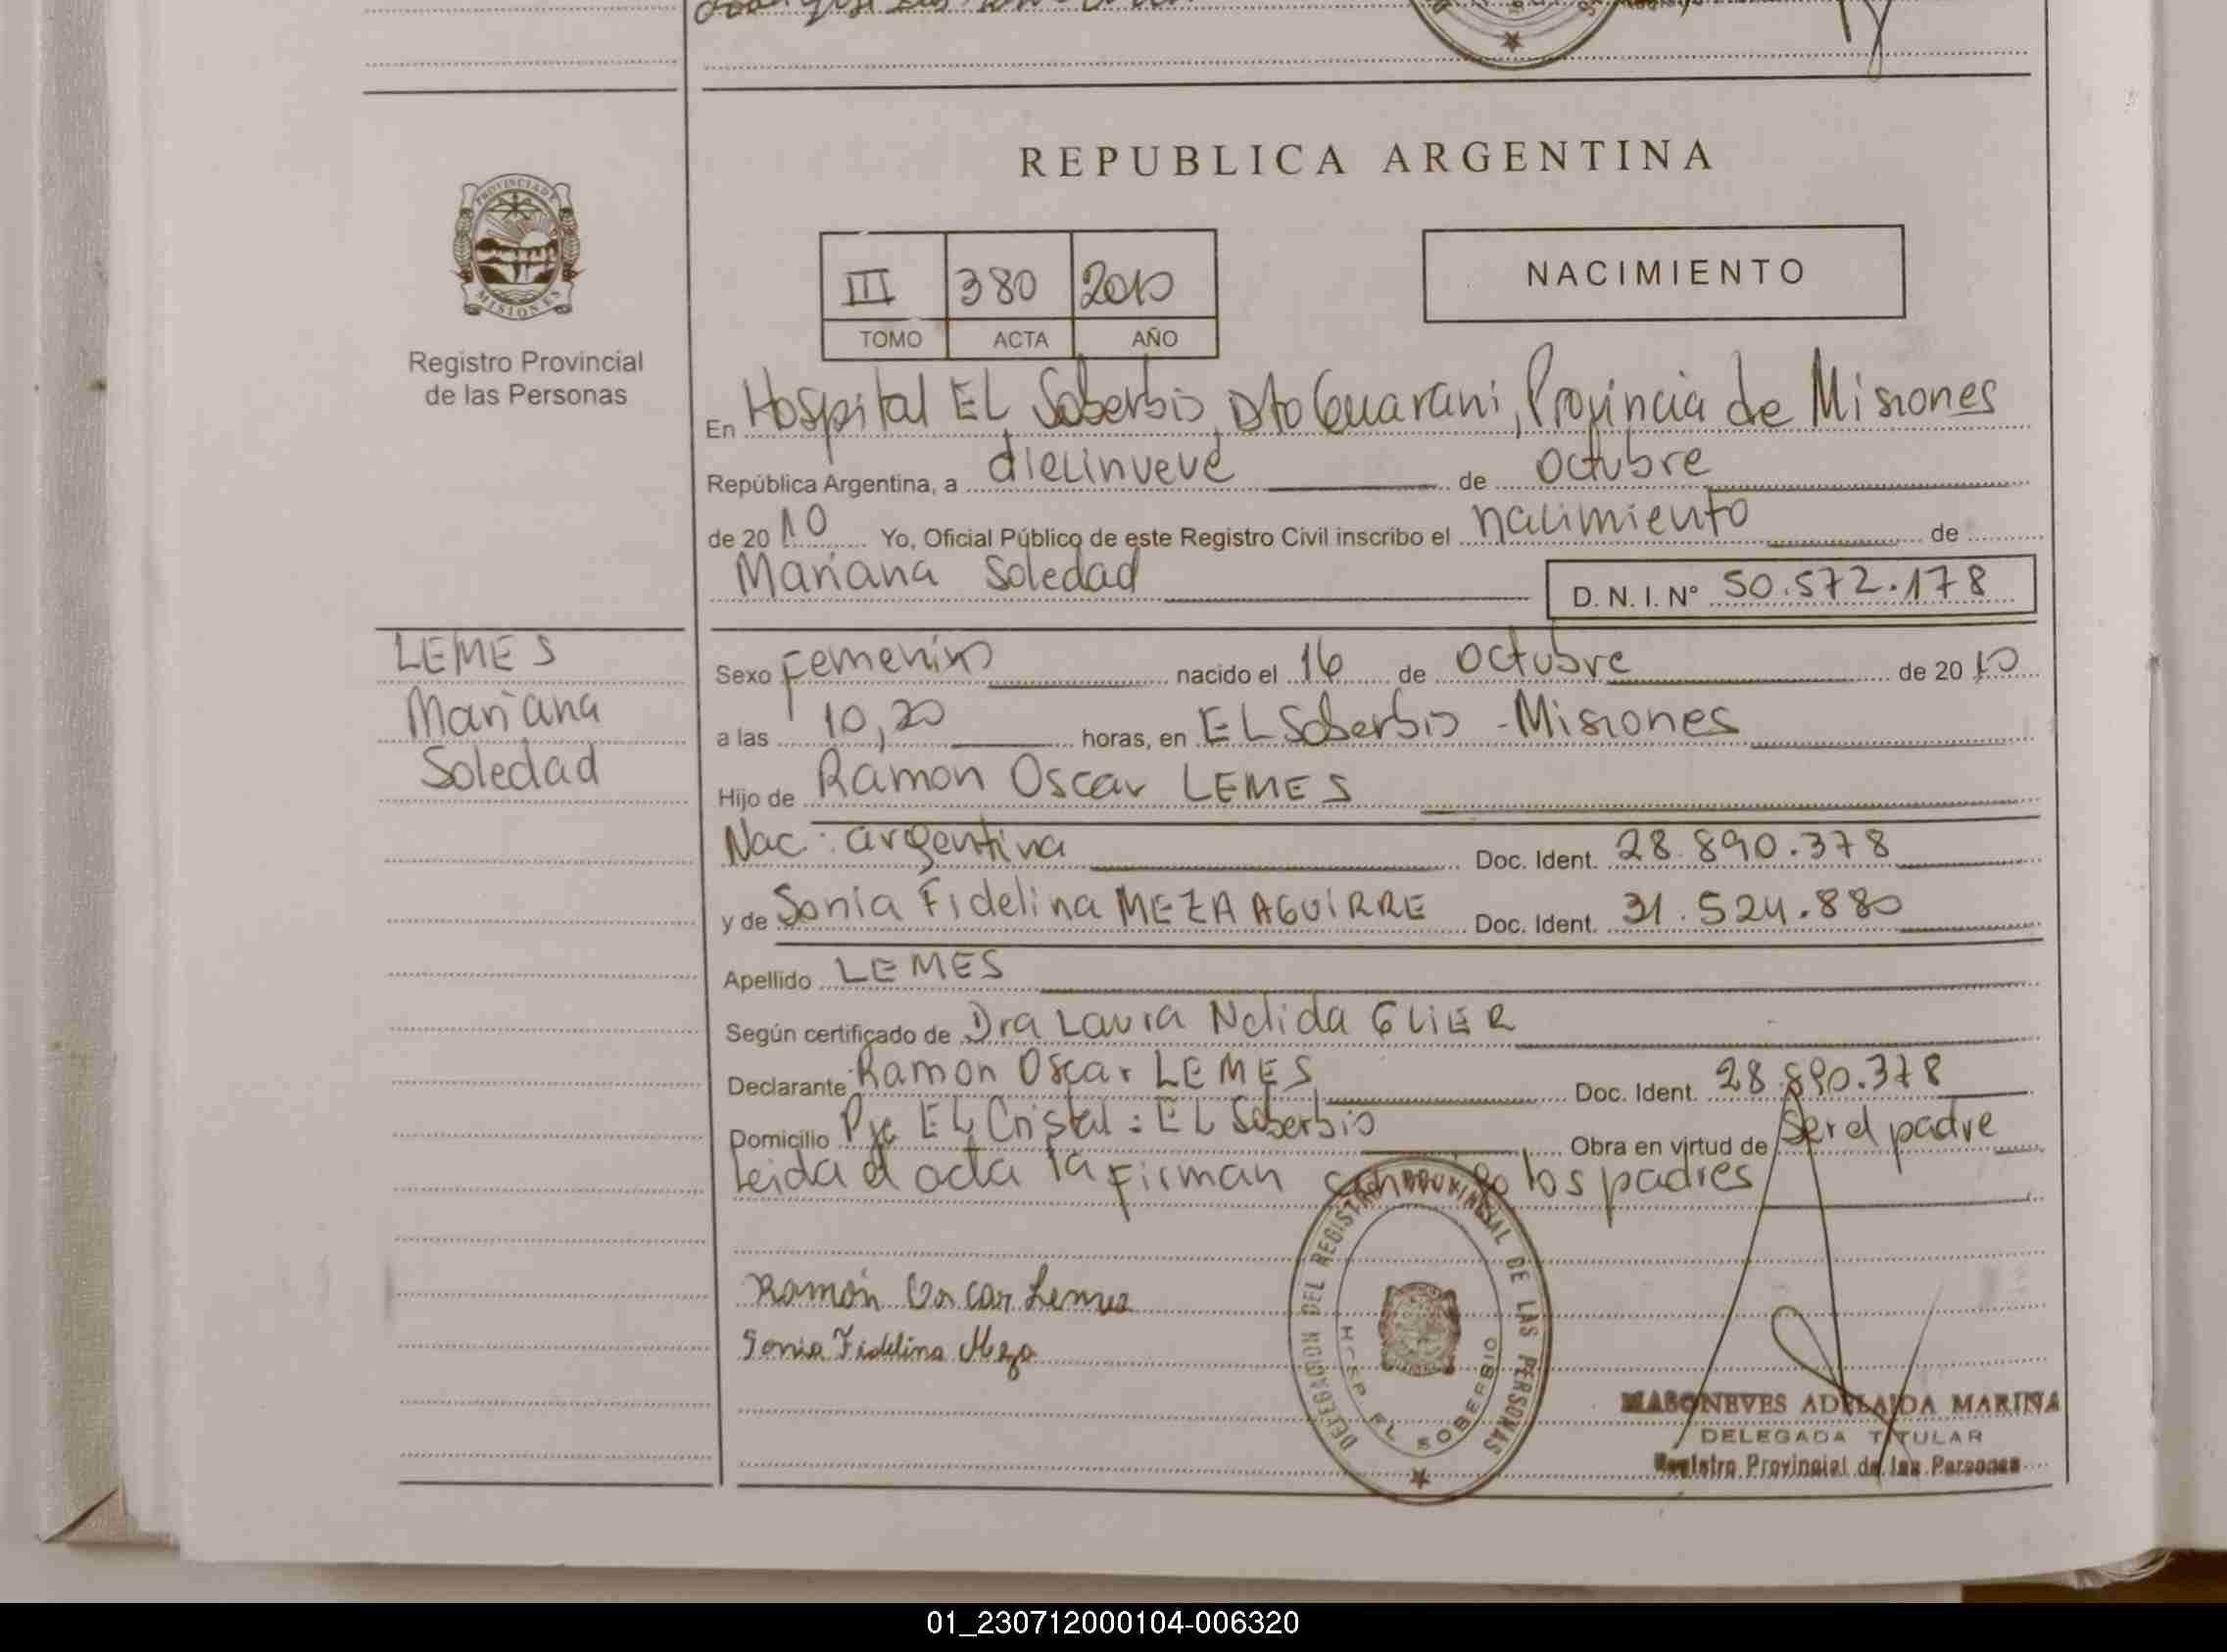 REPUBLICA ARGENTINA
PROVINCIA DE MISIONES
Registro Provincial
de las Personas
III 380 2010
TOMO ACTA AÑO
NACIMIENTO
En Hospital EL Soberbio, Dto Guarani, Provincia de Misiones
República Argentina, a diecinueve de octubre
de 2010 Yo, Oficial Público de este Registro Civil inscribo el nacimiento de
Mariana Soledad D.N.I. Nº 50.572.178
LEMES
Mariana
Soledad
Sexo Femenino nacido el 16 de octubre de 2010
a las 10,20 horas, en EL Soberbio - Misiones
Hijo de Ramon Oscar LEMES
Nac: argentina Doc. Ident. 28.890.378
y de Sonia Fidelina MEZA AGUIRRE Doc. Ident. 31.524.880
Apellido LEMES
Según certificado de Dra Laura Nelida GLIER
Declarante Ramon Oscar LEMES Doc. Ident. 28.890.378
Domicilio Pje EL Cristal: EL Soberbio Obra en virtud de Ser el padre
Leida el acta la firman los padres
Ramón Oscar Lemes
Sonia Fidelina Meza
DELEGACION DEL REGISTRO PROVINCIAL DE LAS PERSONAS
HOSP. EL SOBERBIO
MASONEVES ADELAIDA MARINA
DELEGADA TITULAR
Registro Provincial de las Personas
01_230712000104-006320